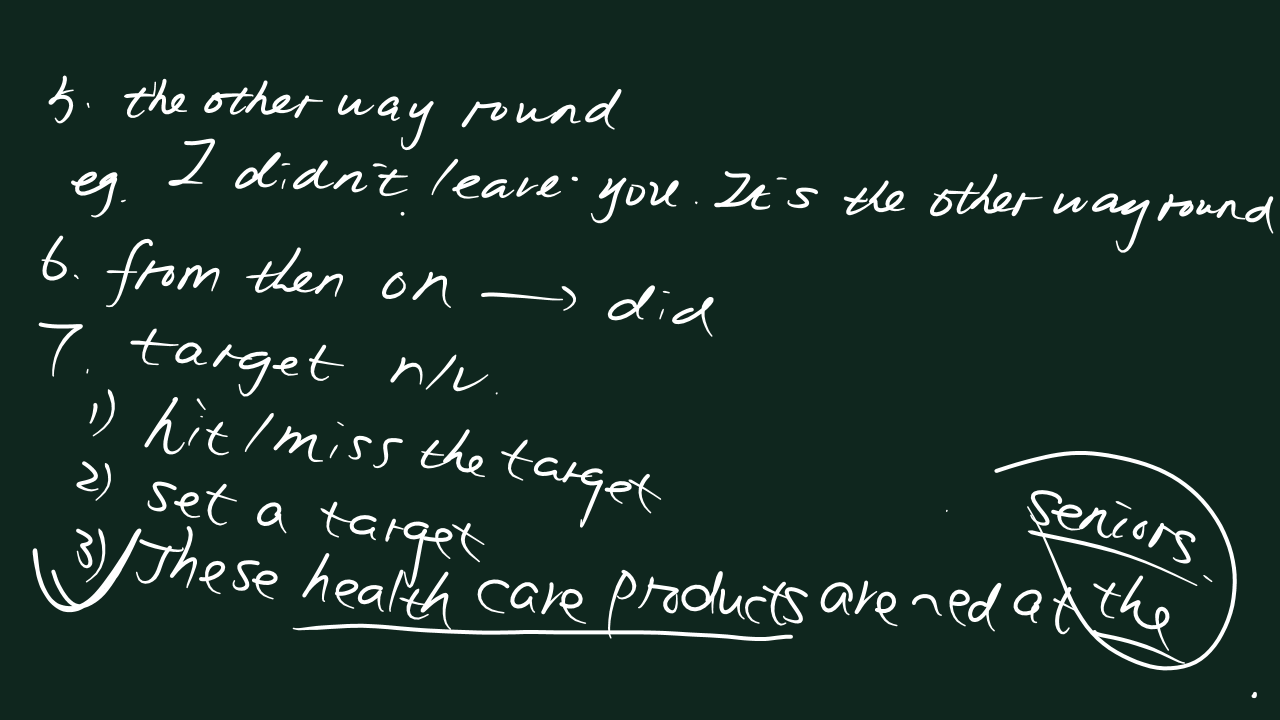 5. the other way round
eg. I didn't leave you. It's the other way round
6. from then on → did
7. target n/v.
1) hit/miss the target
2) set a target
3) These health care products are ~ed at the
seniors